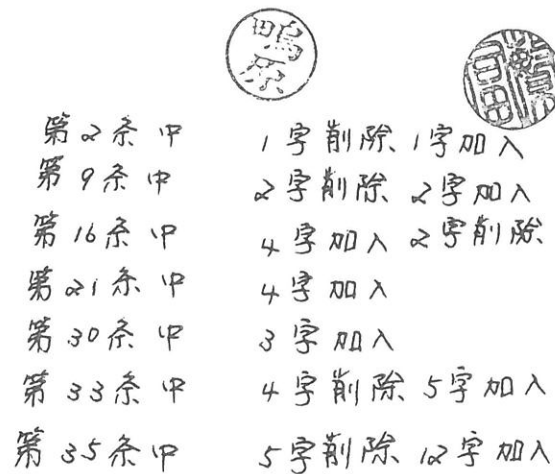 鴨原
第2条中 1字削除、1字加入
第9条中 2字削除 2字加入
第16条中 4字加入 2字削除、
第21条中 4字加入
第30条中 3字加入
第33条中 4字削除 5字加入
第35条中 5字削除 12字加入